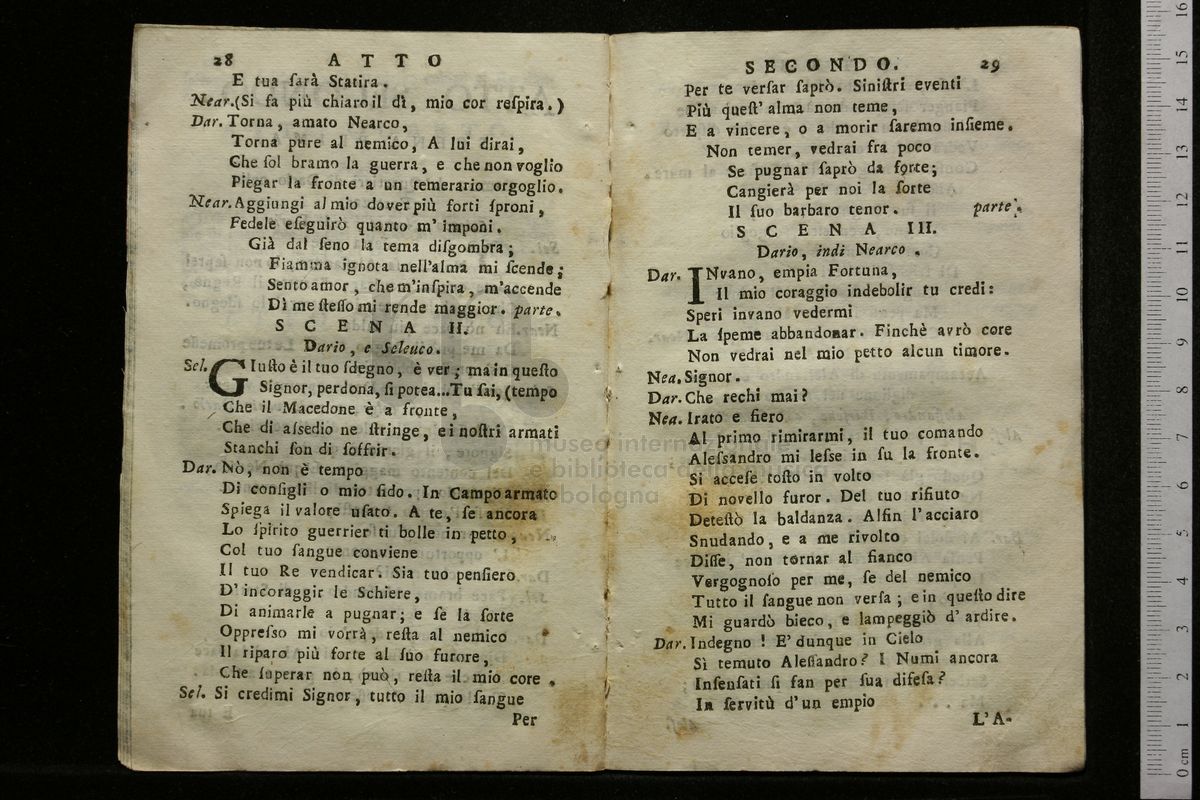 28 A T T O
E tua ſarà Statira.
Near.(Si fa più chiaro il dì, mio cor reſpira.)
Dar. Torna, amato Nearco,
Torna pure al nemico, A lui dirai,
Che ſol bramo la guerra, e che non voglio
Piegar la fronte a un temerario orgoglio.
Near. Aggiungi al mio dover più forti ſproni,
Fedele eſeguirò quanto m' imponi.
Già dal ſeno la tema diſgombra;
Fiamma ignota nell'alma mi ſcende;
Sento amor, che m'inſpira, m'accende
Dì me ſteſſo mi rende maggior. parte.
S C E N A II.
Dario, e Seleuco.
Sel. GIuſto è il tuo ſdegno, è ver; ma in queſto
Signor, perdona, ſi potea...Tu ſai, (tempo
Che il Macedone è a fronte,
Che di aſsedio ne ſtringe, e i noſtri armati
Stanchi ſon di ſoffrir.
Dar. Nò, non è tempo
Di conſigli o mio fido. In Campo armato
Spiega il valore uſato. A te, ſe ancora
Lo ſpirito guerrier ti bolle in petto,
Col tuo ſangue conviene
Il tuo Re vendicar. Sia tuo penſiero
D' incoraggir le Schiere,
Di animarle a pugnar; e ſe la ſorte
Oppreſso mi vorrà, reſta al nemico
Il riparo più forte al ſuo furore,
Che ſuperar non può, reſta il mio core.
Sel. Si credimi Signor, tutto il mio ſangue
Per
SECONDO. 29
Per te verſar ſaprò. Siniſtri eventi
Più queſt' alma non teme,
E a vincere, o a morir ſaremo inſieme.
Non temer, vedrai fra poco
Se pugnar ſaprò da forte;
Cangierà per noi la ſorte
Il ſuo barbaro tenor. parte.
S C E N A III.
Dario, indi Nearco.
Dar. INvano, empia Fortuna,
Il mio coraggio indebolir tu credi:
Speri invano vedermi
La ſpeme abbandonar. Finchè avrò core
Non vedrai nel mio petto alcun timore.
Nea. Signor.
Dar. Che rechi mai?
Nea. Irato e fiero
Al primo rimirarmi, il tuo comando
Aleſsandro mi leſse in ſu la fronte.
Si acceſe toſto in volto
Di novello furor. Del tuo rifiuto
Deteſtò la baldanza. Alfin l'acciaro
Snudando, e a me rivolto
Diſſe, non tornar al fianco
Vergognoſo per me, ſe del nemico
Tutto il ſangue non verſa; e in queſto dire
Mi guardò bieco, e lampeggiò d' ardire.
Dar. Indegno! E' dunque in Cielo
Sì temuto Aleſſandro? I Numi ancora
Inſenſati ſi fan per ſua difeſa?
In ſervitù d'un empio
L'A-
museo internazionale
e biblioteca della musica
bologna
0 cm 1 2 3 4 5 6 7 8 9 10 11 12 13 14 15 16